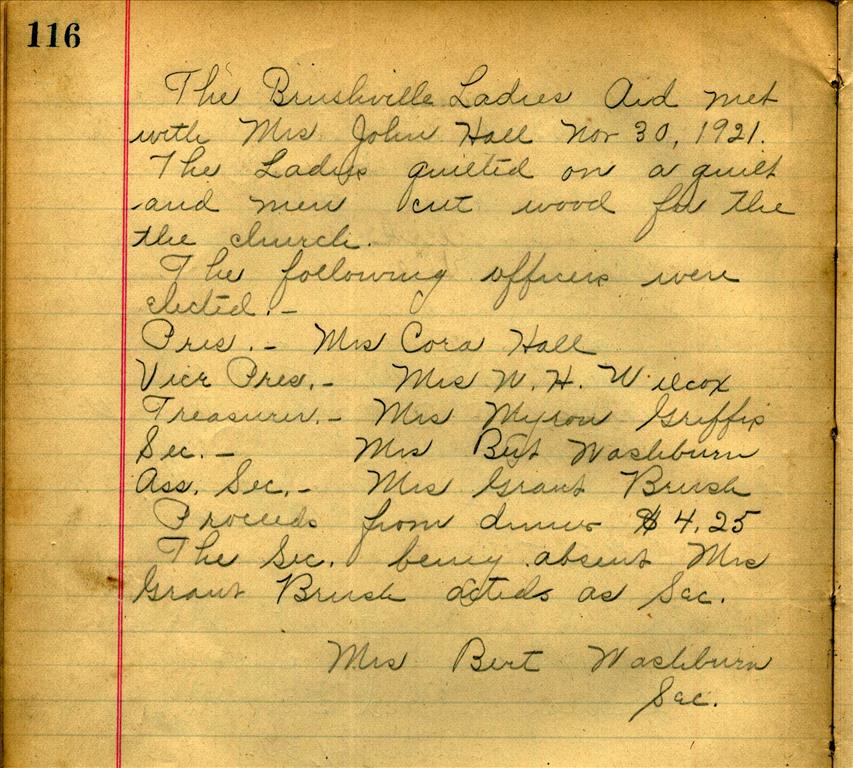 116
The Brushville Ladies Aid met
with Mrs John Hall Nov 30, 1921.
The Ladies quilted on a quilt
and men cut wood for the
the church.
The following officers were
elected:-
Pres.- Mrs Cora Hall
Vice Pres.- Mrs W. H. Wilcox
Treasurer.- Mrs Myron Griffis
Sec.- Mrs Bert Washburn
Ass. Sec.- Mrs Grant Brush
Proceeds from dinner $4.25
The Sec. being absent Mrs
Grant Brush acted as Sec.
Mrs Bert Washburn
Sec.